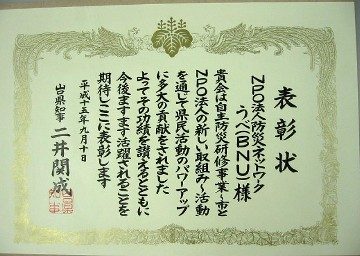 表彰状
NPO法人防災ネットワーク
うべ(BNU)様
貴会は自主防災研修事業～市と
NPO法人の新しい取組み～活動
を通じて県民活動のパワーアップ
に多大の貢献をされました
よってその功績を讃えるとともに
今後ますます活躍されることを
期待しここに表彰します
平成十五年九月十日
山口県知事 二井関成